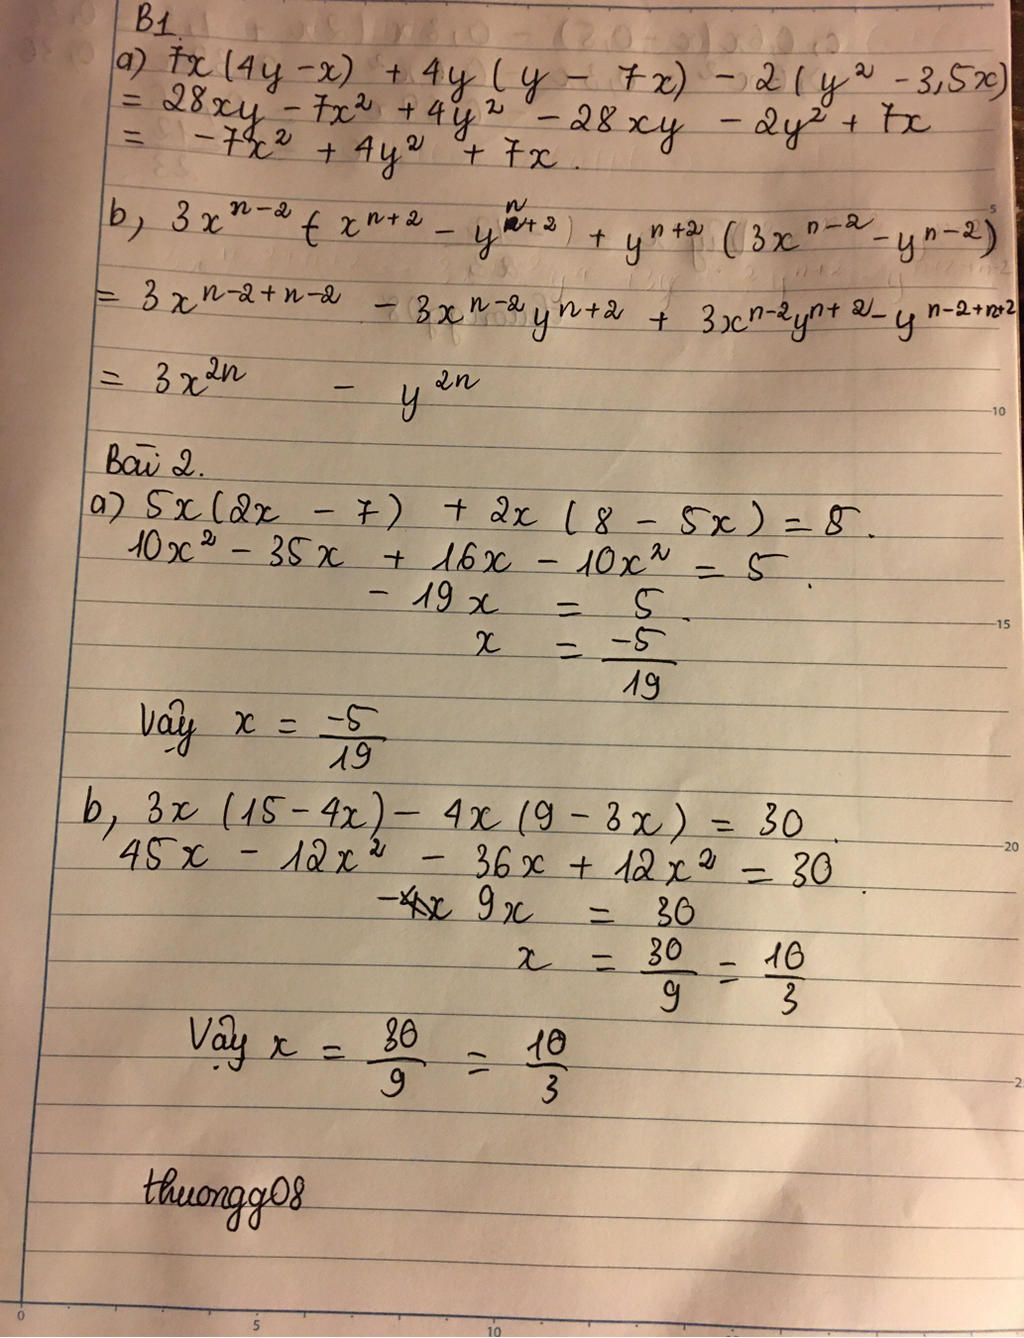 B1.
a) 7x (4y - x) + 4y (y - 7x) - 2 (y² - 3,5x)
= 28xy - 7x² + 4y² - 28xy - 2y² + 7x
= -7x² + 4y² + 7x.
b, 3xⁿ⁻² (xⁿ⁺² - yⁿ⁺²) + yⁿ⁺² (3xⁿ⁻² - yⁿ⁻²)
= 3xⁿ⁻²⁺ⁿ⁻² - 3xⁿ⁻²yⁿ⁺² + 3xⁿ⁻²yⁿ⁺² - yⁿ⁻²⁺ⁿ⁺²
= 3x²ⁿ - y²ⁿ
Bài 2.
a) 5x (2x - 7) + 2x (8 - 5x) = 5.
10x² - 35x + 16x - 10x² = 5.
- 19x = 5.
x = -5/19
Vậy x = -5/19
b, 3x (15 - 4x) - 4x (9 - 3x) = 30.
45x - 12x² - 36x + 12x² = 30.
9x = 30
x = 30/9 = 10/3
Vậy x = 30/9 = 10/3
thuongg08
5
10
15
20
0 5 10